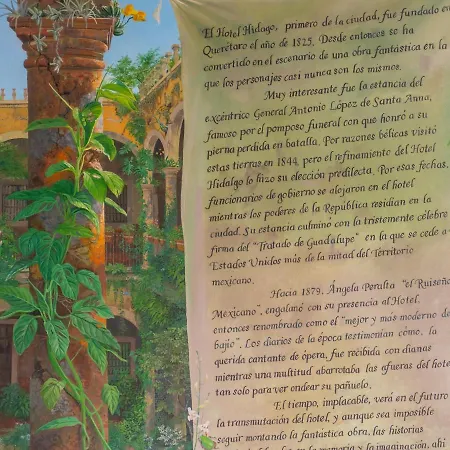 El Hotel Hidago, primero de la ciudad, fue fundado en
Querétaro el año de 1825. Desde entonces se ha
convertido en el escenario de una obra fantástica en la
que los personajes casi nunca son los mismos.
Muy interesante fue la estancia del
excéntrico General Antonio López de Santa Anna,
famoso por el pomposo funeral con que honró a su
pierna perdida en batalla. Por razones bélicas visitó
estas tierras en 1844, pero el refinamiento del Hotel
Hidalgo lo hizo su elección predilecta. Por esas fechas,
funcionarios de gobierno se alejaron en el hotel
mientras los poderes de la República residian en la
ciudad. Su estancia culminó con la tristemente célebre
firma del "Tratado de Guadalupe" en la que se cede a
Estados Unidos más de la mitad del Territorio
mexicano.
Hacia 1879, Ángela Peralta "el Ruiseño
Mexicano", engalanó con su presencia al Hotel,
entonces renombrado como el "mejor y más moderno de
bajío". Los diarios de la época testimonian cómo, la
querida cantante de ópera, fue recibida con dianas
mientras una multitud abarrotaba las afueras del hote
tan solo para ver ondear su pañuelo.
El tiempo, implacable, verá en el futuro
la transmutación del hotel, y aunque sea imposible
seguir montando la fantástica obra, las historias
la memoria y la imaginación, ahí